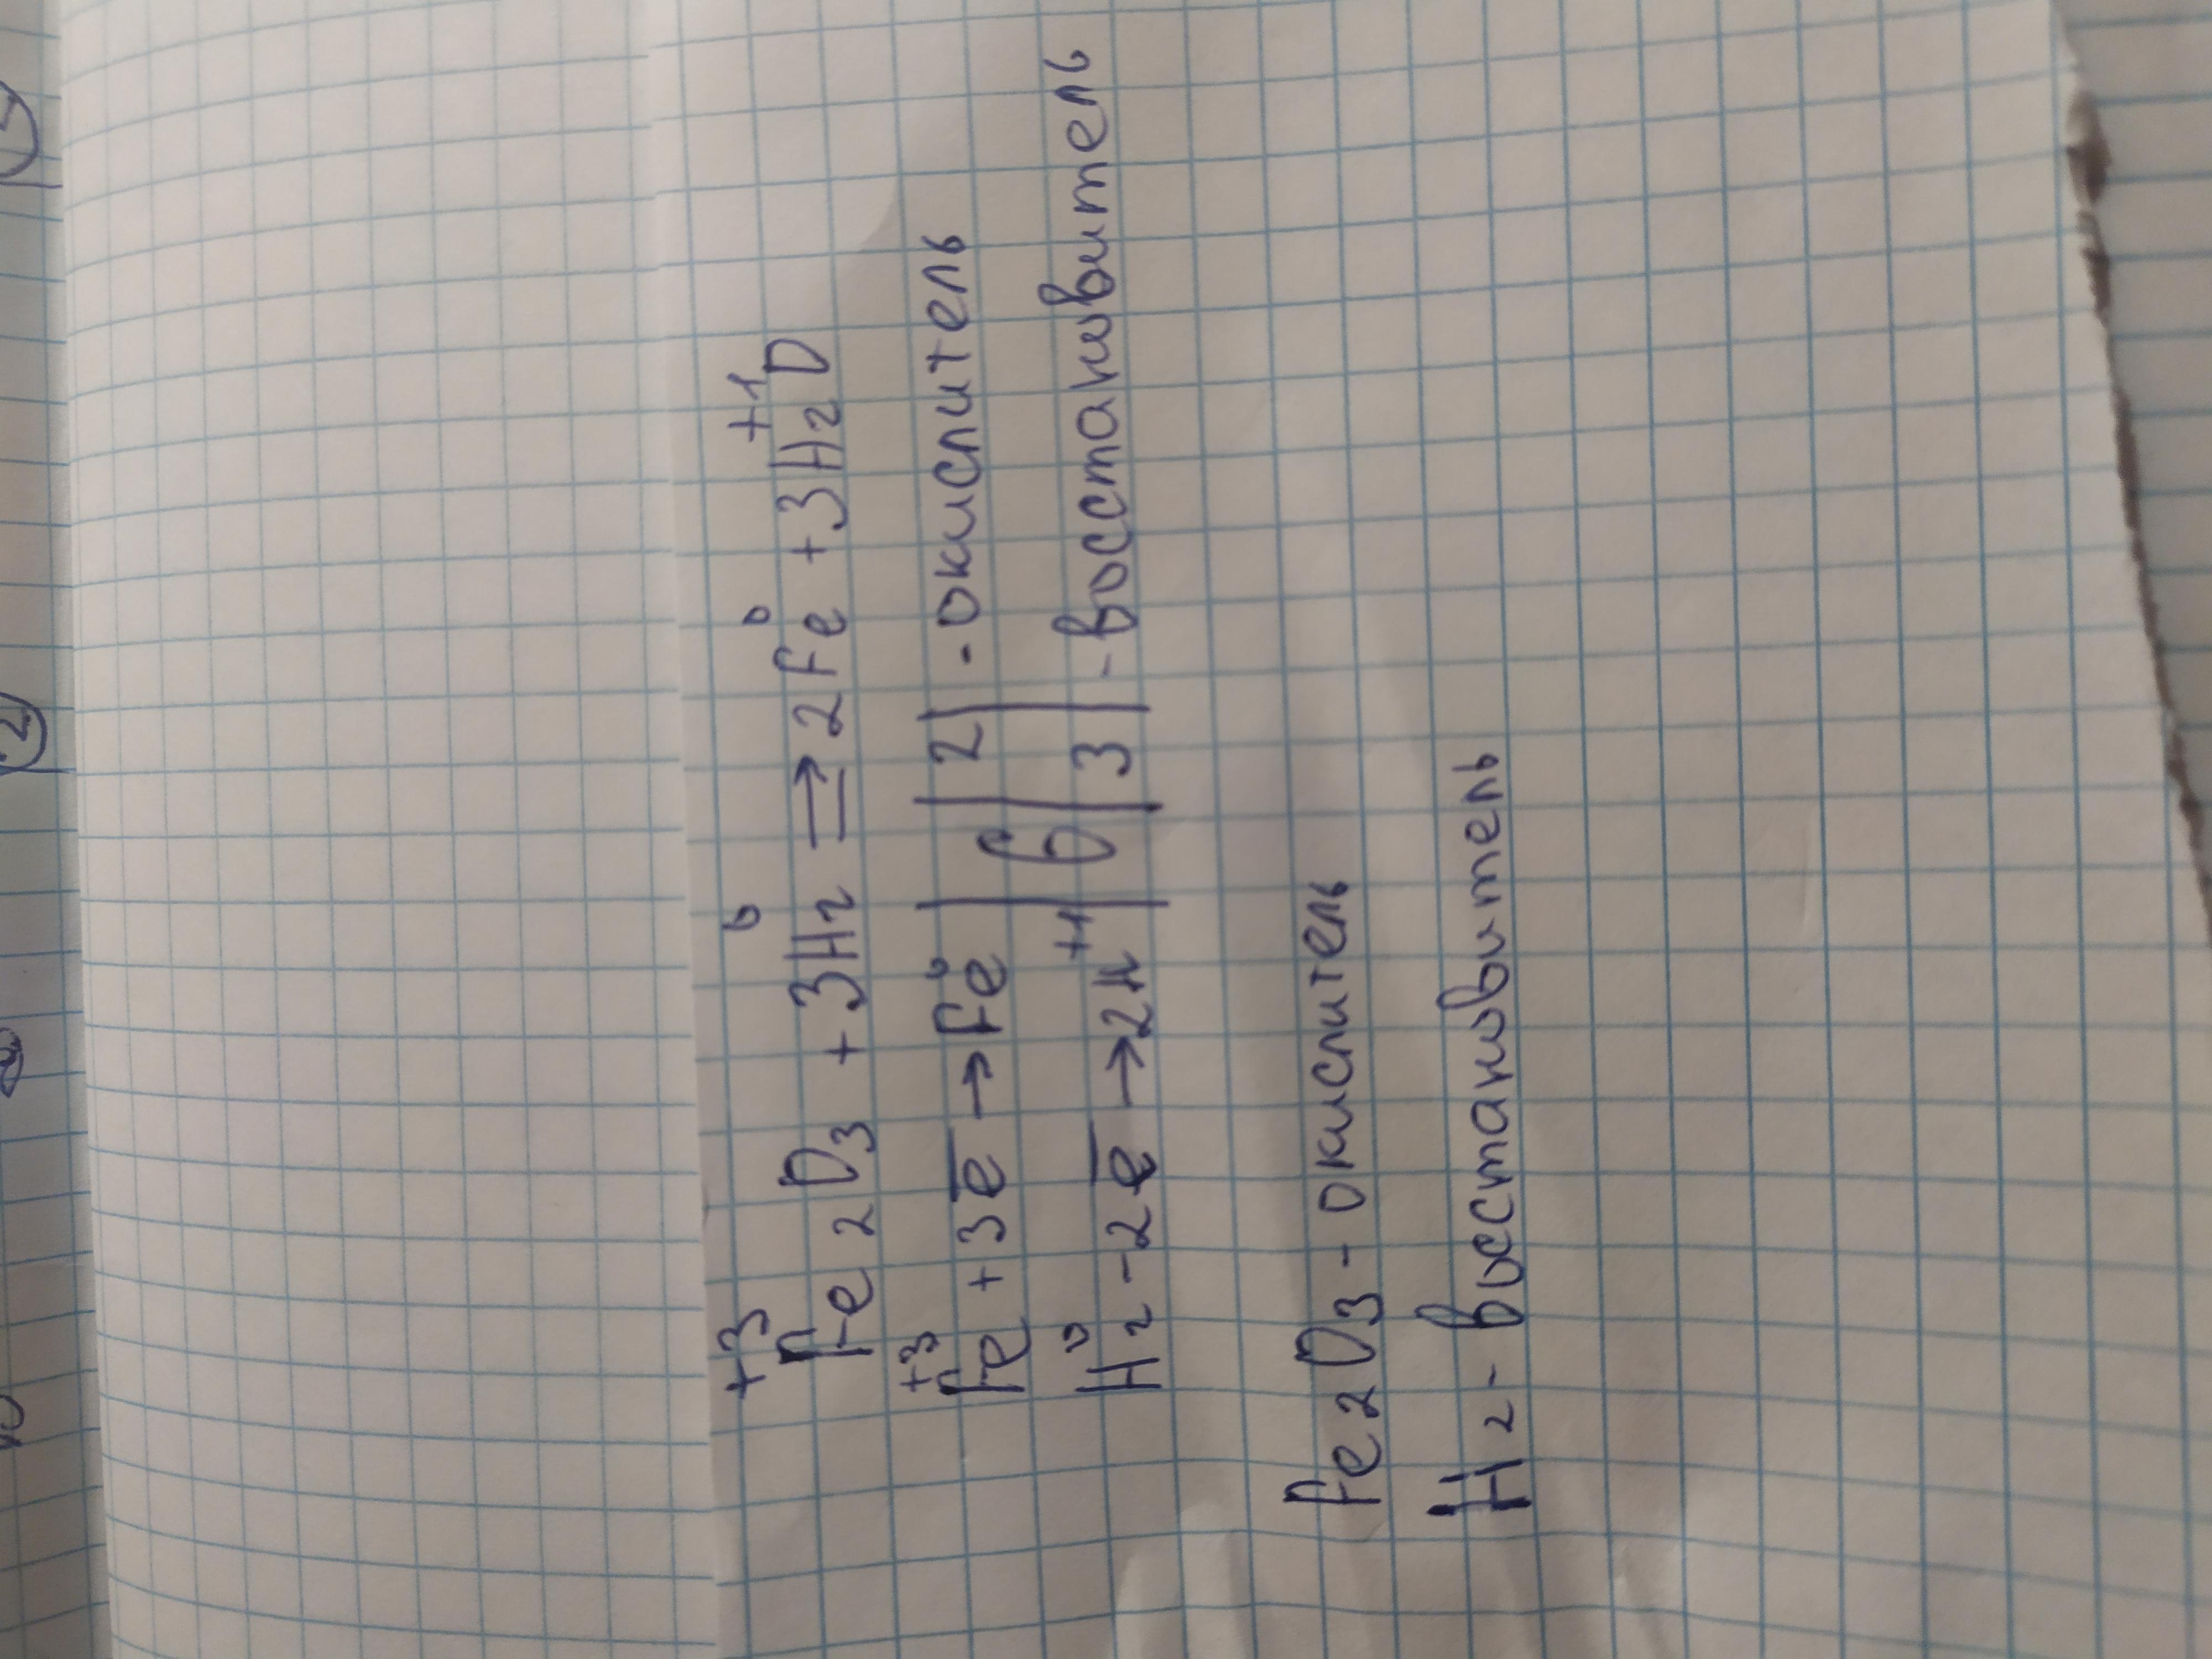 +3 0 0 +1
Fe2O3 + 3H2 ⇒ 2Fe + 3H2O
+3 0
Fe + 3e̅ → Fe | 6 | 2 | - окислитель
0 +1
H2 - 2e̅ → 2H | 3 | - восстановитель
Fe2O3 - окислитель
H2 - восстановитель